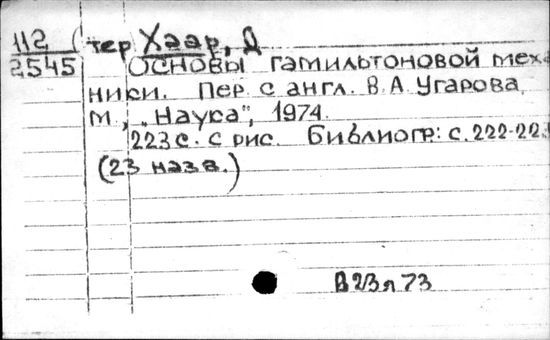 112 (тер Хаар, Д
2545 Основы гамильтоновой меха-
ники. Пер. с англ. В.А. Угарова,
М., „Наука", 1974.
223 с. с рис. Библиогр: с. 222-223
(23 назв.)
В23я73